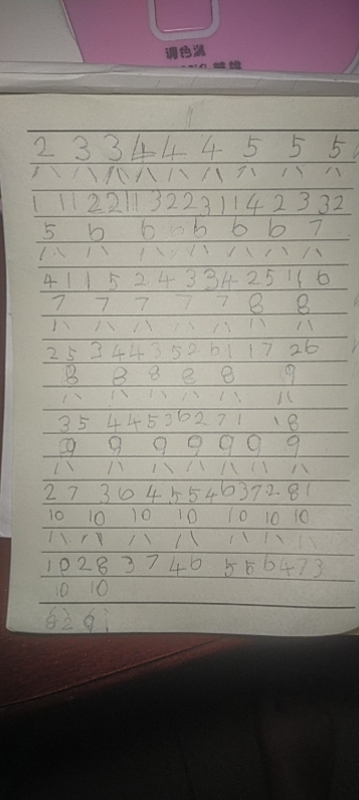 调色派
2 3 3 4 4 4 5 5 5
/\ /\ /\ /\ /\ /\ /\ /\ /\
1 1 1 2 2 1 1 3 2 2 3 1 1 4 2 3 3 2
5 6 6 6 6 6 6 7
/\ /\ /\ /\ /\ /\ /\ /\
4 1 1 5 2 4 3 3 4 2 5 1 1 6
7 7 7 7 7 8 8
/\ /\ /\ /\ /\ /\ /\
2 5 3 4 4 3 5 2 6 1 1 7 2 6
8 8 8 8 8 9
/\ /\ /\ /\ /\ /\
3 5 4 4 5 3 6 2 7 1 1 8
9 9 9 9 9 9 9
/\ /\ /\ /\ /\ /\ /\
2 7 3 6 4 5 5 4 6 3 7 2 8 1
10 10 10 10 10 10 10
/\ /\ /\ /\ /\ /\ /\
1 0 2 8 3 7 4 6 5 5 6 4 7 3
10 10
8 2 9 1